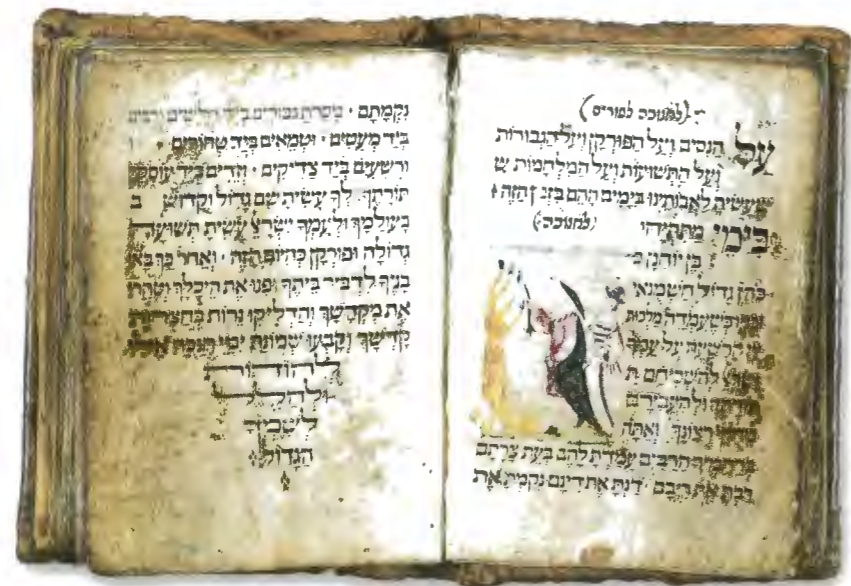 (לחנוכה לפורים)
על הנסים ועל הפורקן ועל הגבורות
ועל התשועות ועל המלחמות ש
שעשית לאבותינו בימים ההם בזמן הזה
בימי מתתיהו (לחנוכה)
בן יוחנן כ
כהן גדול חשמנאי
מלכות
על עמך
להשכיחם ת
ולהעבירם
רצונך ואתה
הרבים עמדת להם בעת צרתם
רבת את ריבם דנת את דינם נקמת את
נקמתם מסרת גבורים ביד חלשים ורבים
ביד מעטים וטמאים ביד טהורים
ורשעים ביד צדיקים וזדים ביד עוסקי
תורתך לך עשית שם גדול וקדוש ב
בעולמך ולעמך ישראל עשית תשועה
גדולה ופורקן כהיום הזה ואחר כך באו
בניך לדביר ביתך ופנו את היכלך וטהרו
את מקדשך והדליקו נרות בחצרות
קדשך וקבעו שמונת ימי חנכה אילו
להודות
ולהלל
לשמך
הגדול